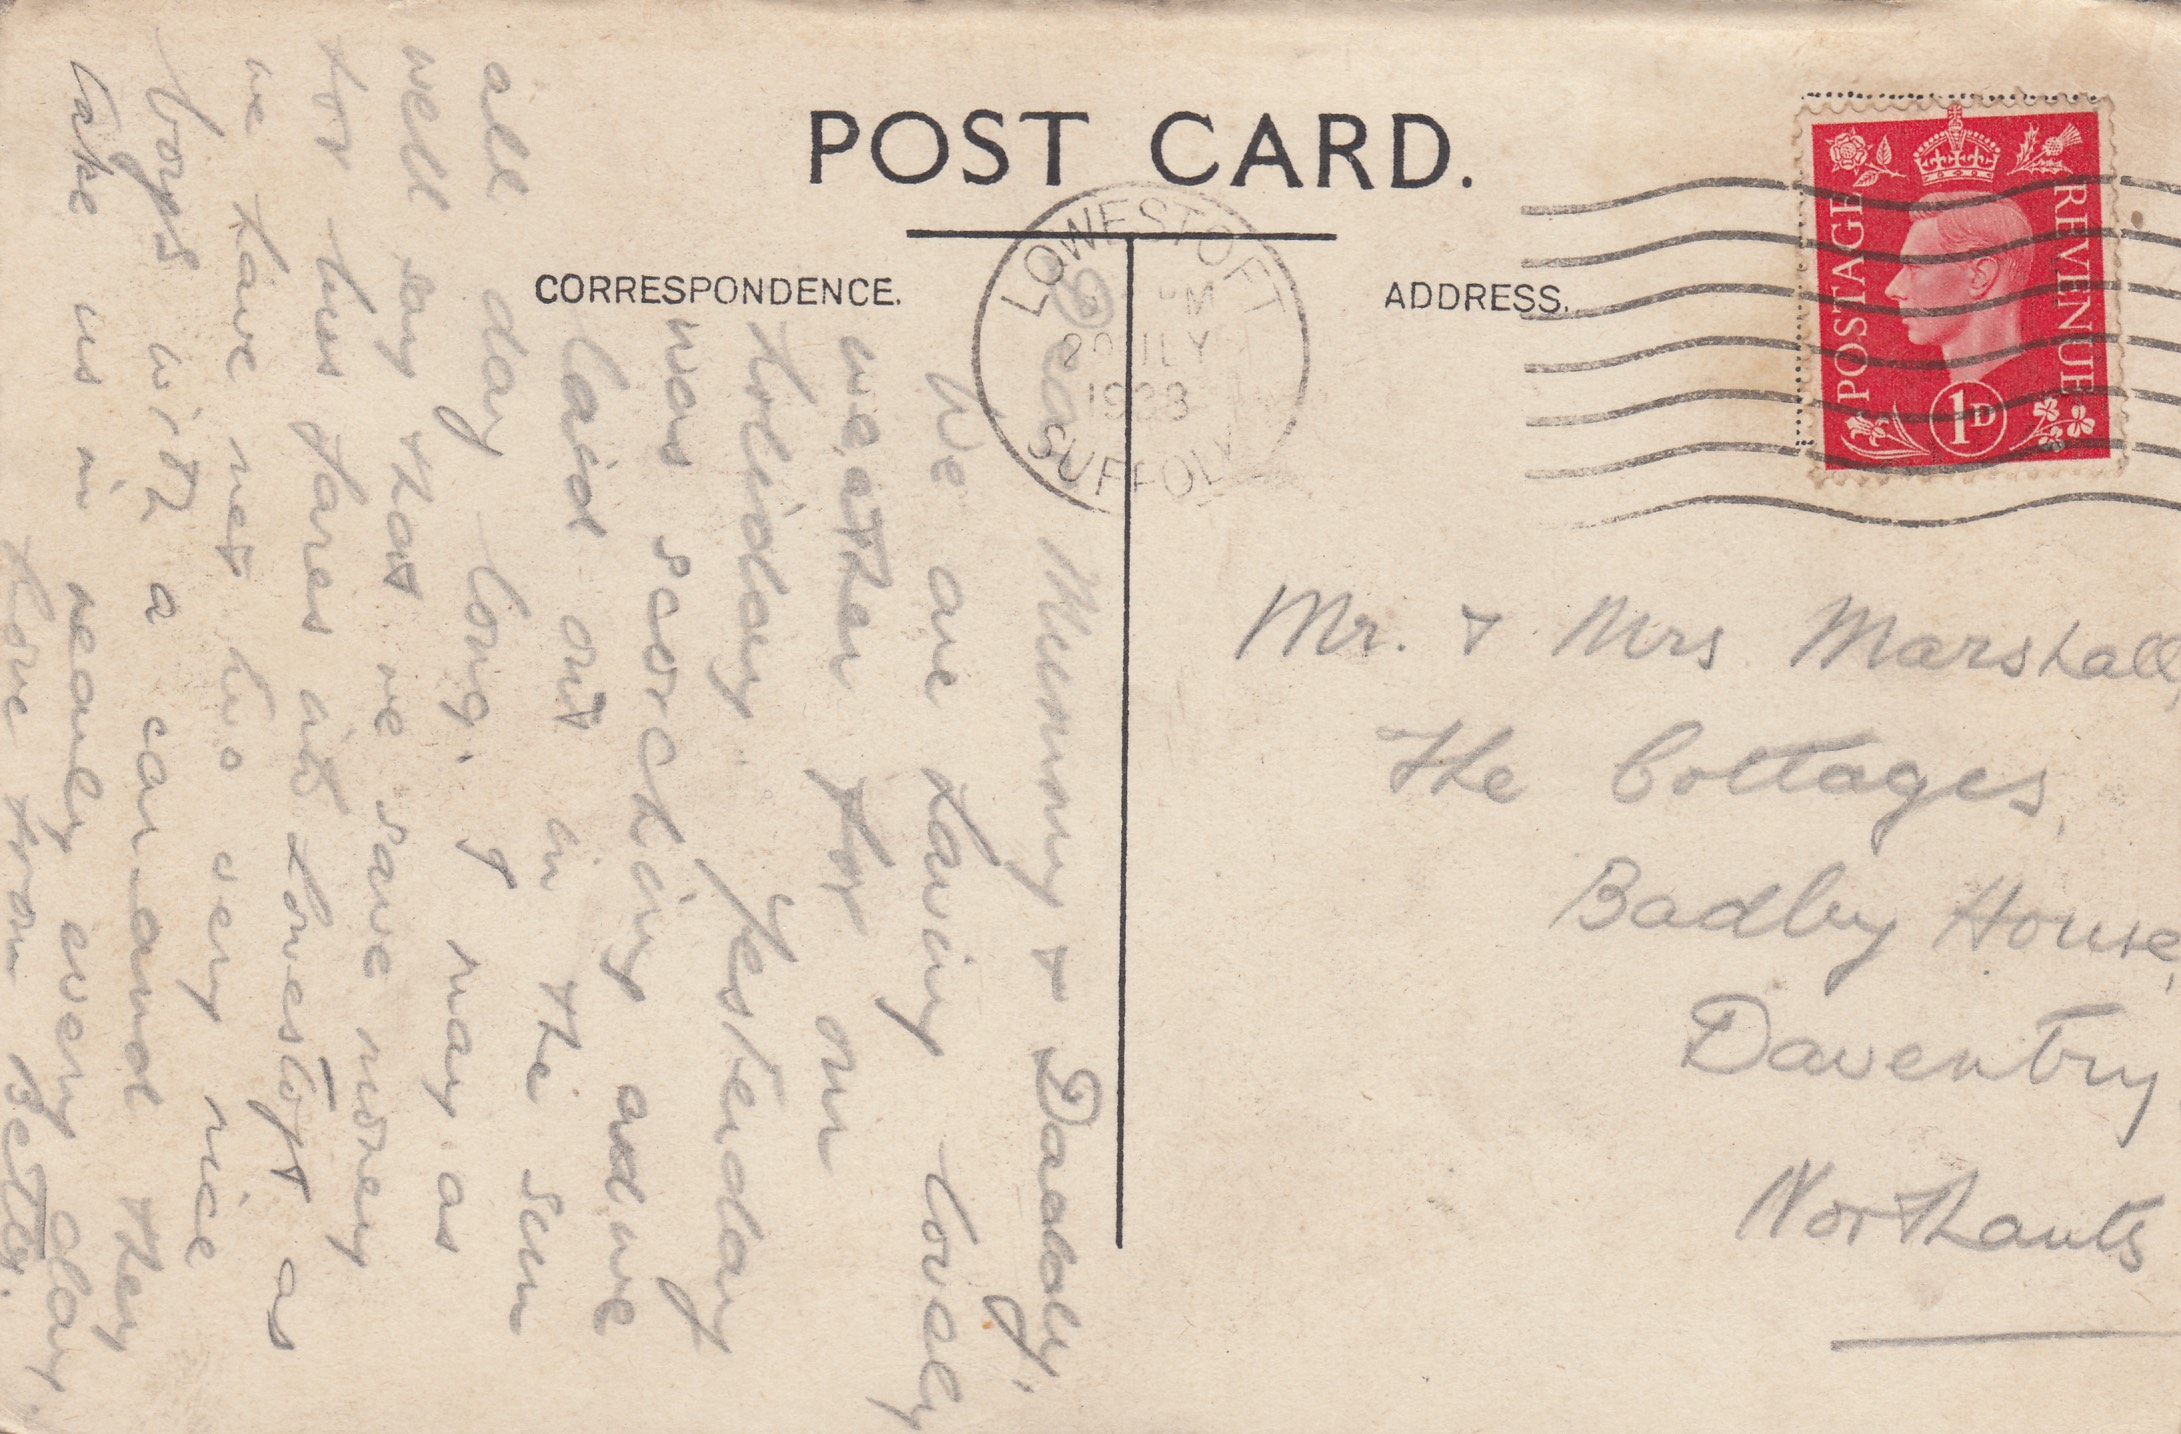 POST CARD.
CORRESPONDENCE.
ADDRESS.
LOWESTOFT
PM
20 JLY
1938
SUFFOLK
POSTAGE
REVENUE
1D
Mr. + Mrs Marshall,
The Cottages,
Badby House,
Daventry
Northants
Dear Mummy + Daddy,
We are having lovely
weather for our
holiday. Yesterday
was scorching and we
laid out in the sun
all day long. I may as
well say that we save money
for bus fares into Lowestoft as
we have met two very nice
boys with a car and they
take us in nearly every day
Love from Betty.